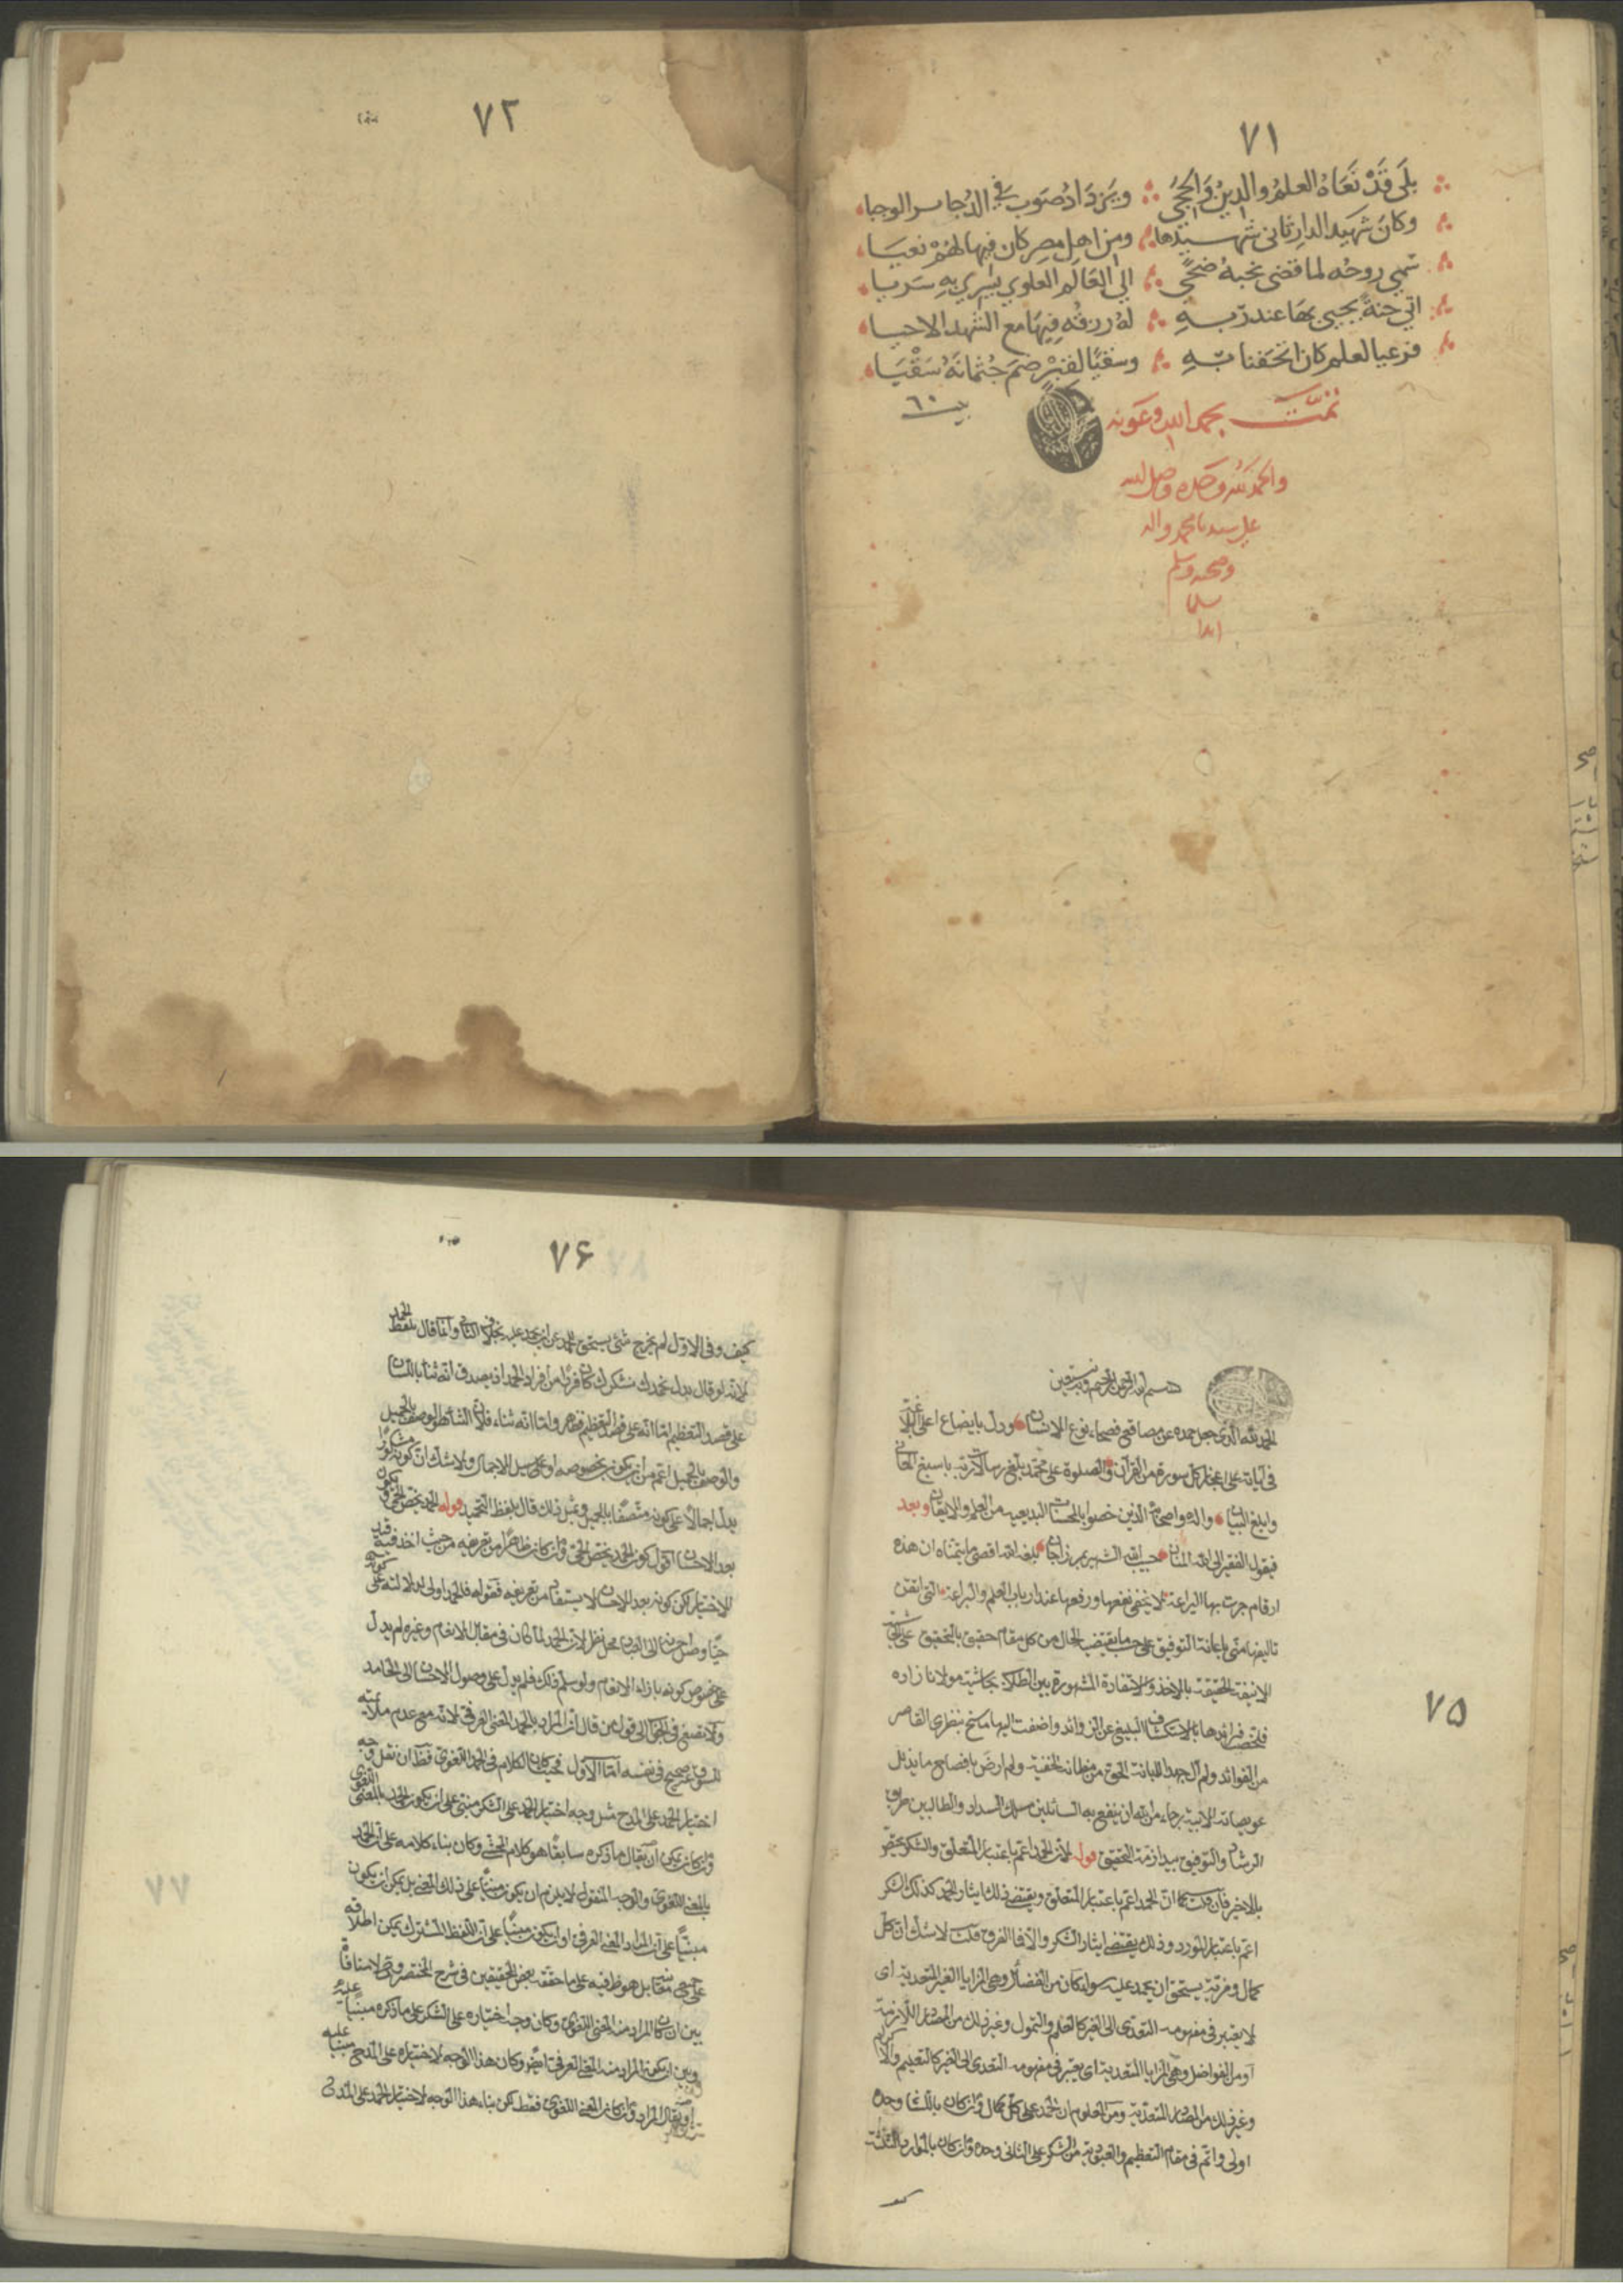 ٧١
بلى قَدْ نَعَاهُ العلمُ والدينُ وَالحجَى ويَزدَادُ صَوب في الدُجا
وكانَ شهيَد الدارِ ثاني شهيدها ومن اهل مصر كان فيها لهُمْ نعيَا
سَمي روحُه لما قضى نحبهُ ضحًى الى العَالم العلوي يَسري بهِ سَريا
اتي جنةً يحيى بهَا عند ربهِ لهُ رزقهِ فيهَا مع الشهد الاحيا
فرعيا لعلم كان اتحَفنا بهِ وسقيًا لقبرٍ ضمَ جُثمانَهُ سَقْيَا
تمت بحمد الله وعَونه
بيت ٦٠
والحمد لله وحده وصلى الله
على سيدنا محمد واله
وصحبه وسلم
سلما
ابدا
٧٢
٧٥
بسم الله الرحمن الرحيم وبه نستعين
الحمد لله الذى جعل حمده عن مصاقع فصحاء نوع الانسان ودل بايضاع اعلى
فى آياته على اعجاز كل سورة من القرآن والصلوة على محمد بتبليغ رسالات ربه باسبغ
وابلغ البيان واله واصحابه الذين خصوا بالمحسنات البديعيه من العلم والايقان وبعد
فيقول الفقير الى الله المنان حبيب الله الشهير بمرزاجان بلغه الله اقصى ما يتمناه ان هذه
ارقام جرت بها اليراعة لا يخفى نفعها ورفعها عند ارباب العلم والبراعة التى اتفق
تاليفها منى باعانة التوفيق على حسب ما يقتضيه الحال من كل مقام حقيق بالتحقيق على
الانيقة الحقيقة بالاخذ والاستفادة المشهورة بين الطلاب بحاشية مولانا زاده
فلخصت فرائدها بالاستكشاف البليغ عن الزوائد واضفت اليها ما سنح بنظرى القاصر
من الفوائد ولم آل جهدا للابانة الحق من مظانه الخفية ولم ارض بافصاح ما يذلل
عويصاته الابية رجاء من الله ان ينفع به السائلين مسلك السداد والطالبين طريق
الرشاد والتوفيق بيد ازمة التحقيق قوله لان الحمد اعم باعتبار المتعلق والشكر يختص
بالاخير فان قلت كما ان الحمد اعم باعتبار المتعلق ويقتضى ذلك ايثار الحمد كذلك الشكر
اعم باعتبار المورد وذلك يقتضى ايثار الشكر والا فما الفرق قلت لا شك ان كل
كمال ومزية يستحق ان يحمد عليه سواء كان من الفضائل وهى المزايا الغير المتعدية اى
لا يعتبر فى مفهومه التعدى الى الغير كالعلم والتمول وغير ذلك من المصادر اللازمة
او من الفواضل وهى المزايا المتعدية اى يعتبر فى مفهومه التعدى الى الغير كالتعليم والاكرام
وغير ذلك من المصادر المتعدية ومن المعلوم ان الحمد على كل كمال وان كان باللسان وحده
اولى واتم فى مقام التعظيم والعبودية من الشكر على الثانى وحده وان كان بالموارد الثلثة
٧۶
كيف وفى الاول لم يخرج شئ يستحق الحمد عن ان يحمد عليه بخلاف الثانى وانما قال بلفظ الحمد
لانه لو قال بدل نحمدك نشكرك كان فردا من افراد الحمد اذ يصدق انه ثناء باللسان
على قصد التعظيم اما انه على قصد التعظيم فظاهر واما انه ثناء فلان الثناء هو الوصف بالجميل
والوصف بالجميل اعم من ان يكون بخصوصه او على سبيل الاجمال ولا شك ان كونه مشكورا
يدل اجمالا على كونه متصفا بالجميل ذلك قال بلفظ التحميد قوله الحمد يختص الحى
بعد الاحسان اقول كون الحمد يختص الحى وان كان ظاهرا من تعريفه من حيث اخذ فيه قيد
الاختيار لكن كونه بعد الاحسان لا يستفاد من تعريفه فقوله فالحمد اولى لدلالته على كونه
حيا واصل الى العباد محل نظر لان الحمد لما كان فى مقابل الانعام وغيره لم يدل
على خصوص كونه بازاء الانعام ولو سلم ذلك فلم يدل على وصول الاحسان الى الحامد
ولا تصغ فى الجواب الى قول من قال ان المراد بالحمد المعنى العرفى لانه مع عدم ملائمته
للسوق غير صحيح فى نفسه اما الاول فحيث كان الكلام فى الحمد اللغوى
اختيار الحمد على المدح مثل وجه اختيار الحمد على الشكر مبنى على ان يكون الحمد بالمعنى اللغوى
وان كان يمكن ان يقال ما ذكره سابقا هو كلام المحشى وكان بناء كلامه على ان الحمد
بالمعنى اللغوى والوجه المنقول لا يلزم ان يكون مبنيا على ذلك المعنى بل يمكن ان يكون
مبنيا على ان المراد المعنى العرفى او ان يكون مبنيا على ان اللفظ المشترك يمكن اطلاقه
على معنييه بل هو ظ فيه على ما حققه بعض المحققين فى شرح المختصر
بين ان كان المراد منه المعنى اللغوى وكان وجه اختياره على الشكر على ما ذكره مبنيا عليه
وبين ان يكون المراد منه المعنى العرفى ايضا وكان هذا الوجه لاختياره على المدح مبنيا عليه
او يقال المراد وان كان المعنى اللغوى فقط لكن بناء هذا الوجه لاختيار الحمد على المدح
٧٧